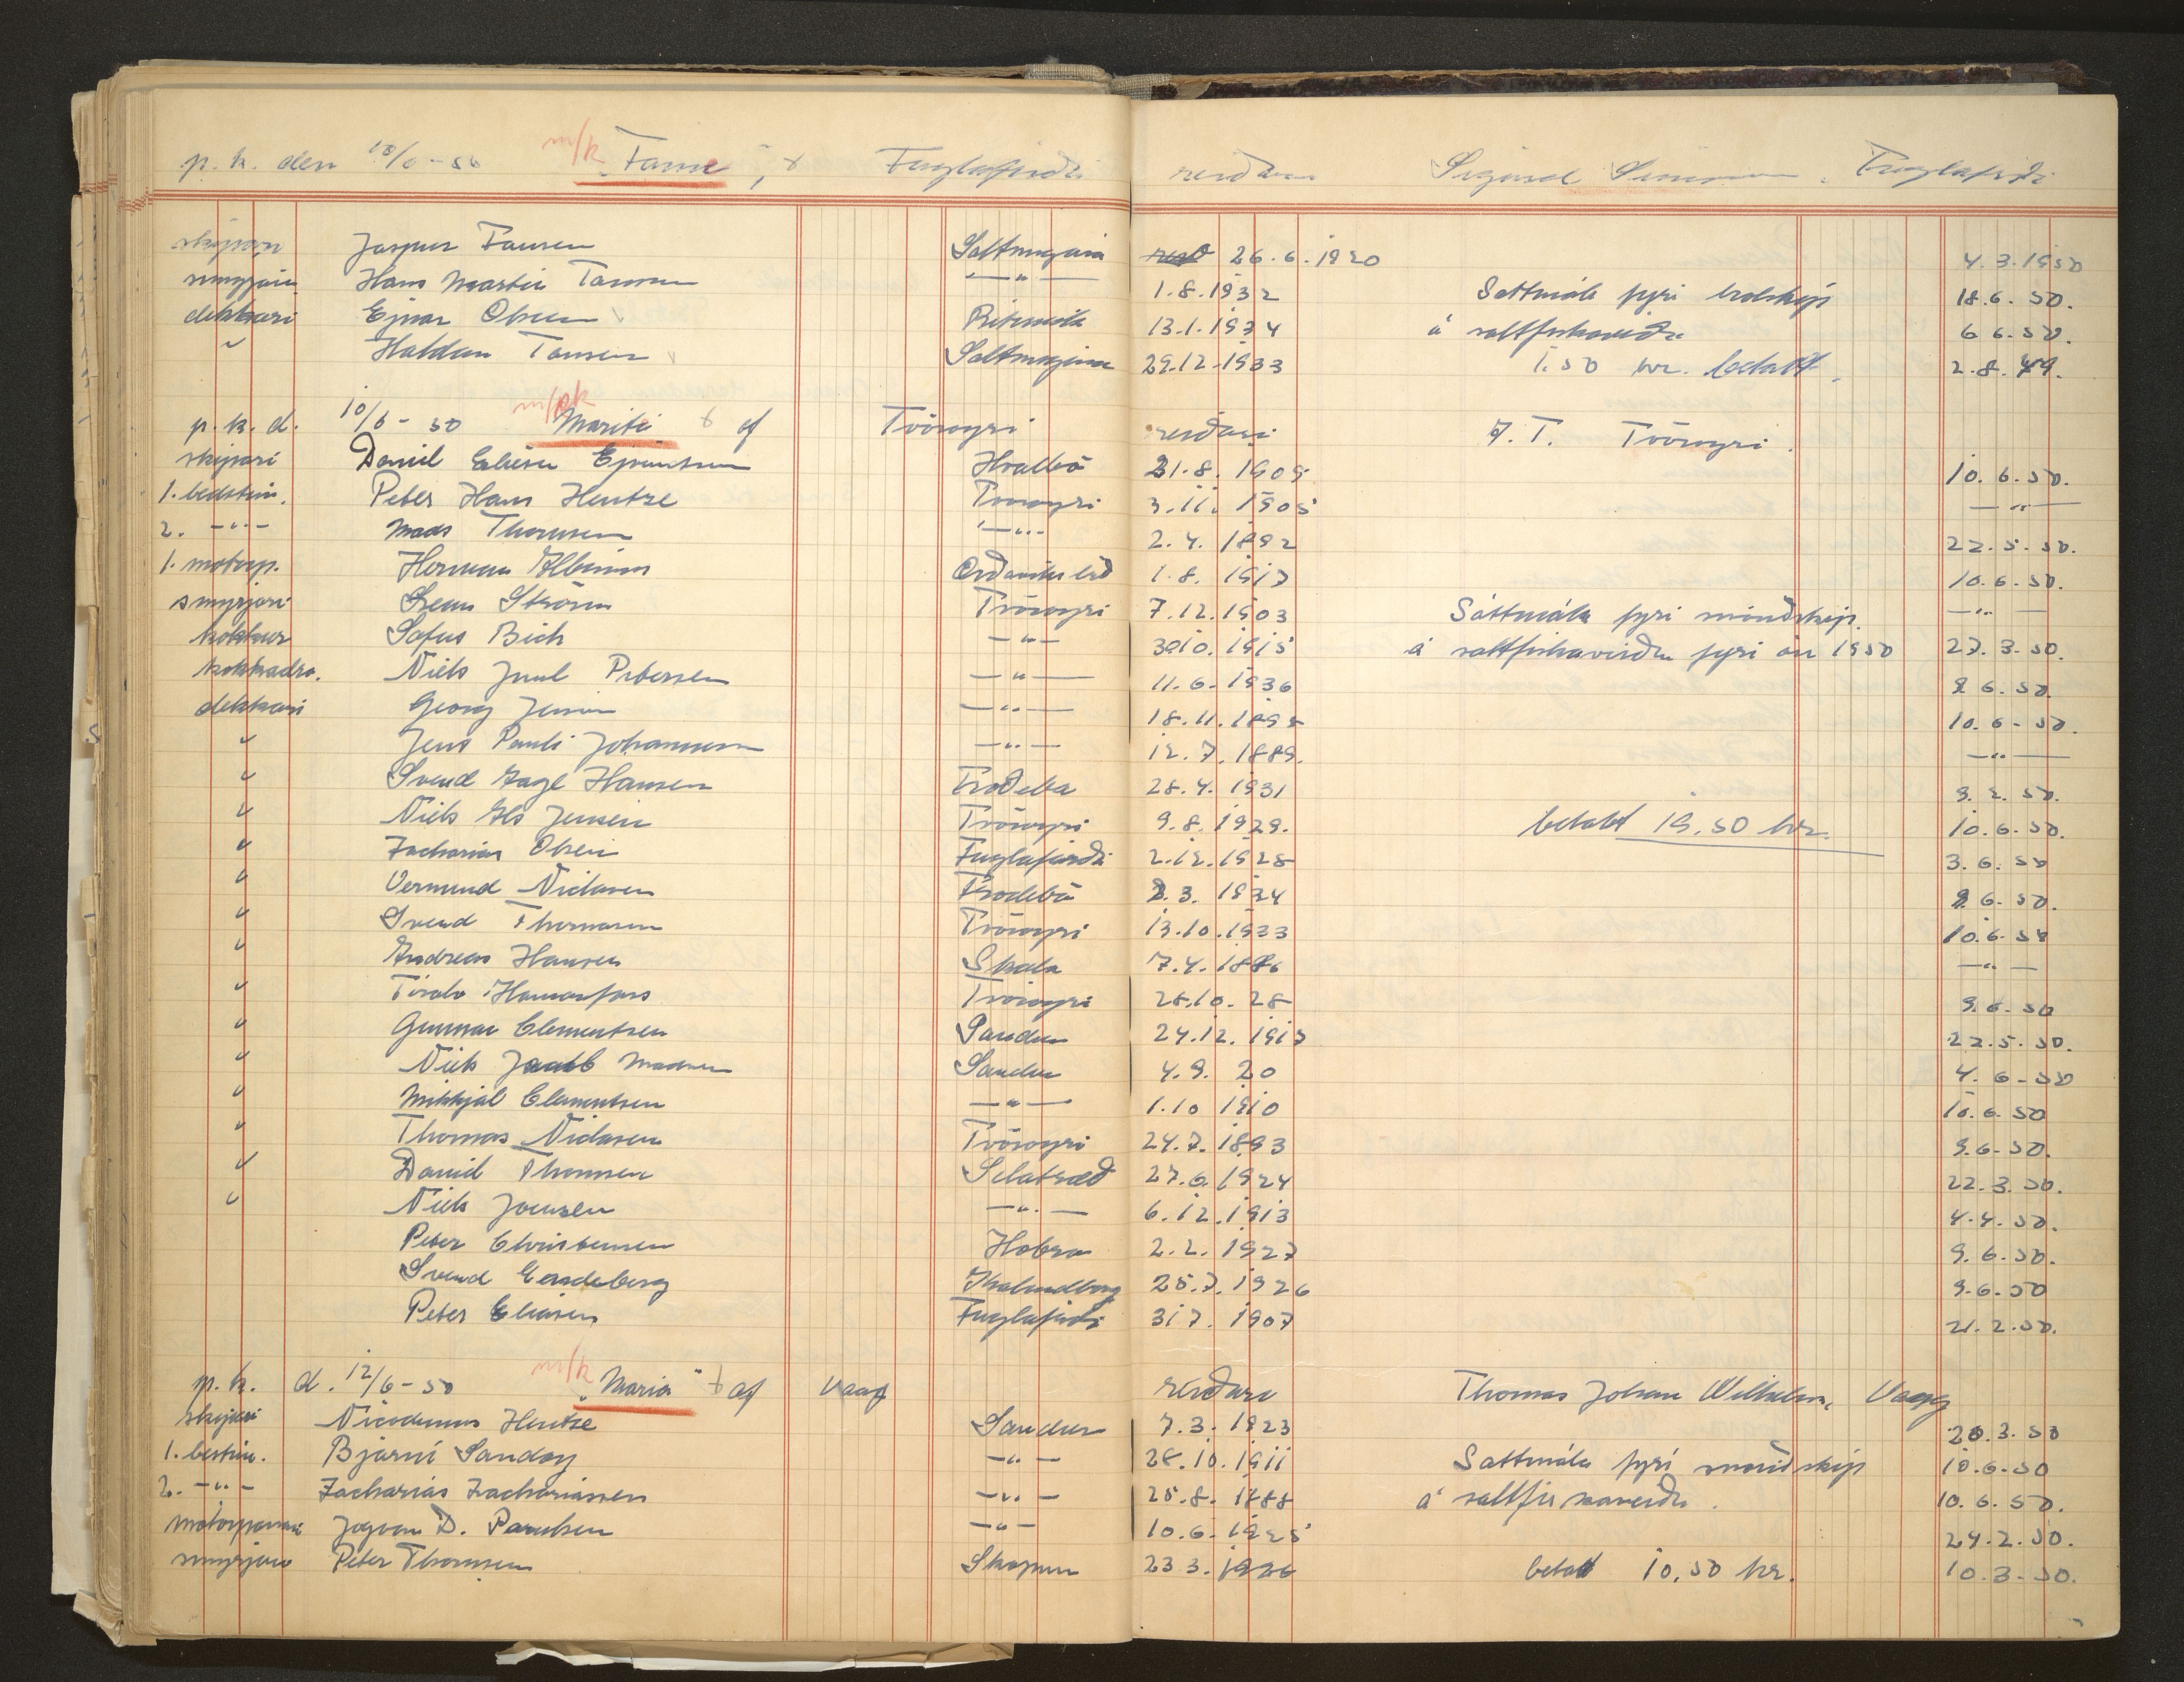 p. k. den 10/6-50 m/k "Fame", Fuglafirði reiðari Sigurd Simonsen, Fuglafirði
skipari Jaspur Tausen Saltnagara 26.6.1920 4.3.1950
smyrjari Hans Martin Tausen —"— 1.8.1932 Sáttmála fyri trolskip 18.6.50.
dekkari Ejnar Olsen Ritevik 13.1.1934 á saltfiskaveiðu 6 6.50.
" Haldan Tausen Saltnagara 29.12.1933 1.50 kr. betalt. 2.8.49.
p. k. d. 10/6-50 m/k Marite af Tvöroyri reiðari T. T. Tvöroyri.
skipari Daniel Eliesar Ejvindsson Hvalbö 21.8.1909 10.6.50.
1. bedstm. Peter Hans Hentze Tvöroyri 3.11.1905 —"—
2. —"— Mads Thomsen —"— 2.4.1892 22.5.50.
1. motorp. Herman Albinus Örðavikslíð 1.8.1917 10.6.50.
smyrjari Ström Tvöroyri 7.12.1903 Sáttmála fyri snóðskip. —"—
kokkur Sofus Bech —"— 30.10.1915 á saltfiskaveiðu fyri ár 1950 27.3.50.
kokkadr. Niels Juul Petersen —"— 11.6.1936 9 6.50.
dekkari Georg Jensen —"— 18.11.1898 10.6-50.
" Jens Pauli Johannesen —"— 12.7.1889. —"—
" Svend Aage Hansen Froðeba 28.4.1931 9.2.50.
" Niels Als Jensen Tvöroyri 9.8.1929. betalt 19.50 kr. 10.6.50.
" Zacharias Olsen Fuglafirði 2.12.1928 3.6.50
" Vermund Niclasen Frodebö 2.3.1934 9 6.50.
" Svend Thomasen Tvöroyri 13.10.1933 10.6.50
" Andreas Hansen Skala 7.4.1886 —"—
" Hamarfoss Tvöroyri 28.10.28 9.6-50
" Gunnar Clementsen Sandur 24.12.1917 22.5.50.
" Niels Jacob Madsen Sandur 4.9.20 4.6-50
" Mikkjal Clementsen —"— 1.10 1910 10.6.50
" Thomas Niclasen Tvöroyri 24.7.1893 9.6-50.
" Daniel Thomsen Selatrað 27.6.1924 22.3.50.
" Niels Joensen —"— 6.12.1913 4.4.50.
Peter Christensen Hobro 2.2.1927 9.6.50.
Svend Kalundborg 25.7.1926 9.6.50
Peter Eliasen Fuglafirði 31 7.1907 21.2.50.
p. k. d. 12/6-50 m/k "Maria" af Vaag reiðari Thomas Johan Wilhelm, Vaag
skipari Nicodemus Hentze Sandur 7.3.1923 20.3.50
1. bestm. Bjarni Sandoy —"— 28.10.1911 Sattmála fyri snóðskip 10.6-50
2. —"— Zacharias Zachariassen —"— 25.8.1888 á saltfiskaveiðu. 10.6.50.
motorpassari Jogvan D. Poulsen —"— 10.6.1925 24.2.50.
smyrjari Peter Thomsen Skopun 23 3.1926 betalt 10.50 kr. 10.3-50.